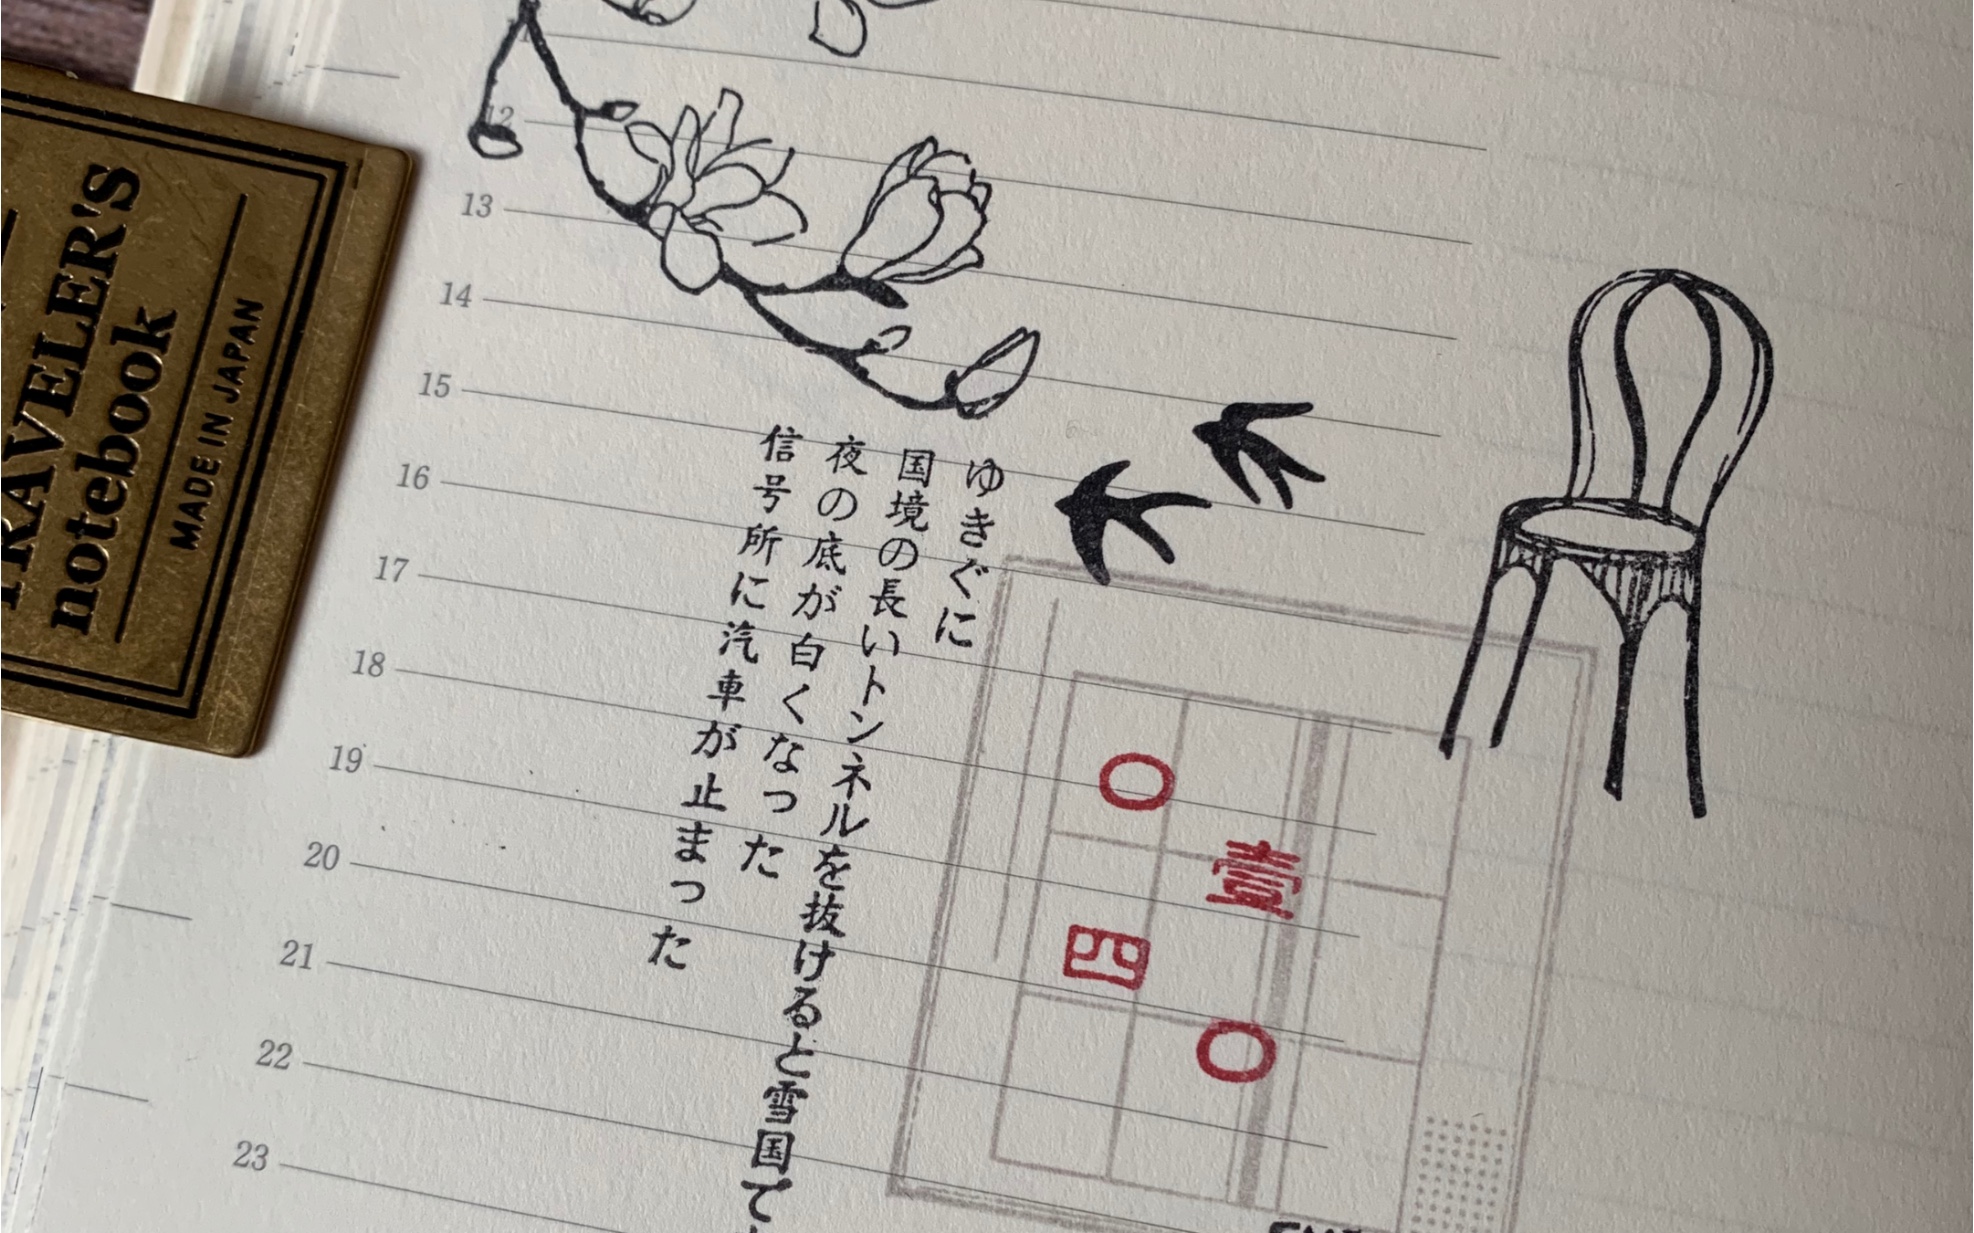 TRAVELER'S
notebook
MADE IN JAPAN
12
13
14
15
16
17
18
19
20
21
22
23
ゆきぐに
国境の長いトンネルを抜けると雪国で
夜の底が白くなった
信号所に汽車が止まった
壹〇
〇四